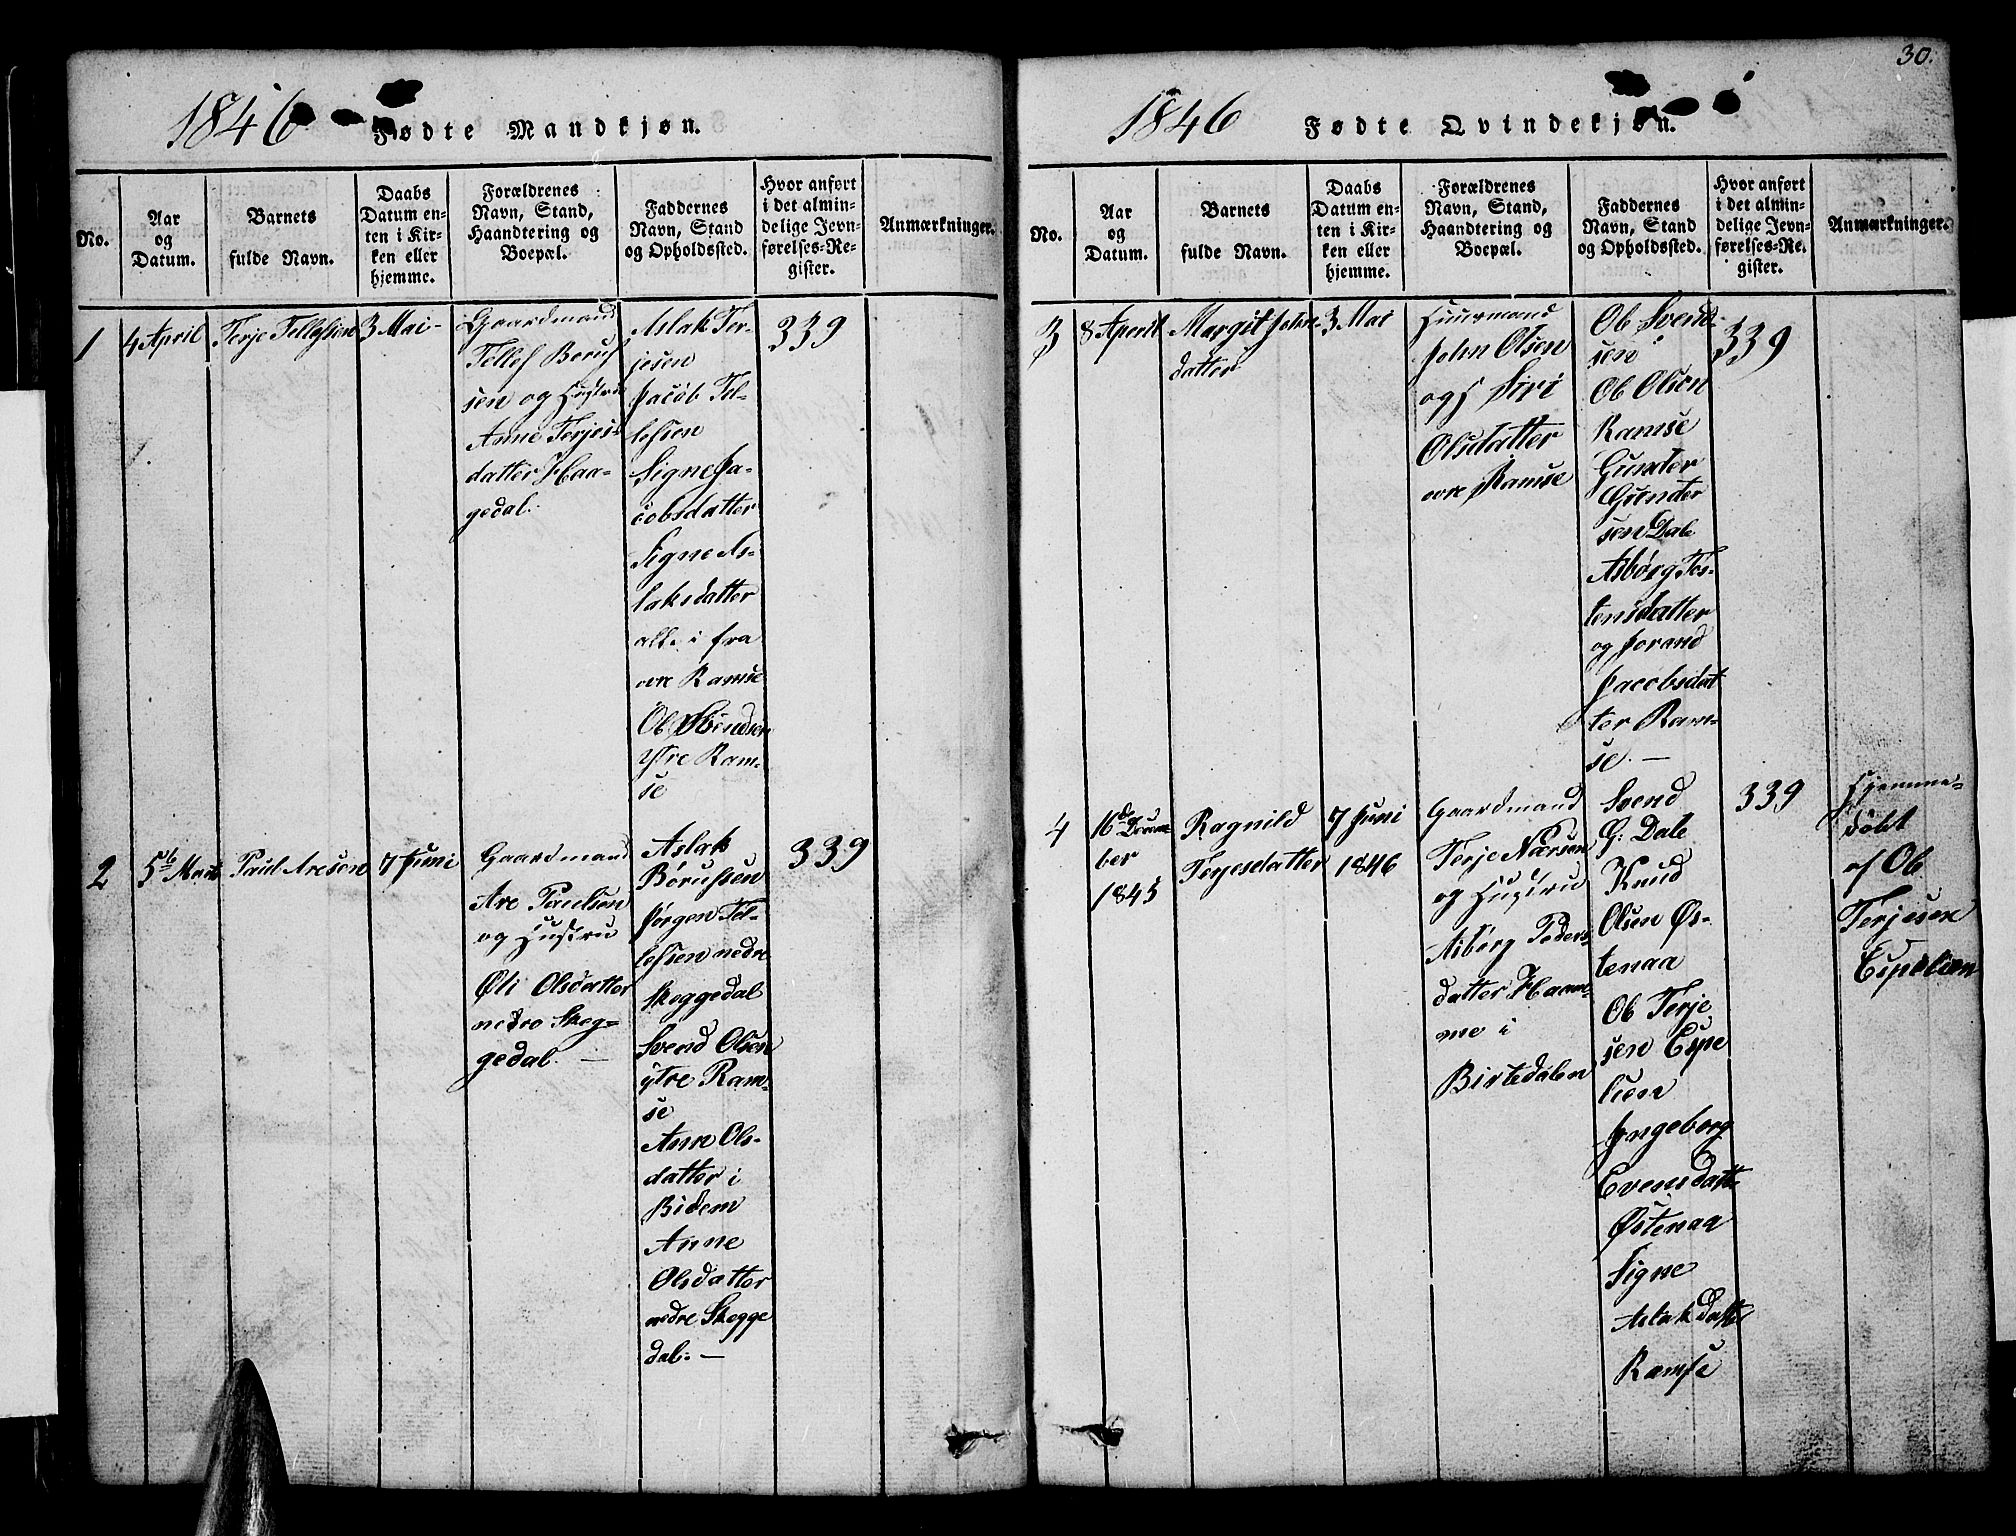 1846 Fødte Mandkjøn.
No.
Aar
og
Datum.
Barnets
fulde Navn.
Daabs
Datum en-
ten i Kir-
ken eller
hjemme.
Forældrenes
Navn, Stand,
Haandtering og
Boepæl.
Faddernes
Navn, Stand
og Opholdssted.
Hvor anført
i det almin-
delige Jevn-
førelses-Re-
gister.
Anmærkninger.
1
4 April
Terje Tellefsen
3 Mai
Gaardmand
Tellef Beruf
sen og Hustru
Anne Terjes-
datter Haa-
gedal.
Aslak Ter-
jesen
Jacob Tel-
lefsen
Signe Ja-
cobsdatter
Signe As-
laksdatter
alle i fra
øvre Ramse
Ob Svendsen
ytre Ram-
se
339
2
5te Marts
Paul Aresen
7 Juni
Gaardmand
Are Paulsen
og Hustru
Øli Olsdatter
nedre Skeg-
gedal. —
Aslak
Børufsen
Jørgen Tel-
lefsen nedre
Skeggedal
Svend Olsen
ytre Ram-
se
Anne Ols-
datter i
Bidem
Anne
Olsdatter
nedre Skegge
dal. —
339
30.
1846 Fødte Qvindekjøn.
No.
Aar
og
Datum.
Barnets
fulde Navn.
Daabs
Datum en-
ten i Kir-
ken eller
hjemme.
Forældrenes
Navn, Stand,
Haandtering og
Boepæl.
Faddernes
Navn, Stand
og Opholdssted.
Hvor anført
i det almin-
delige Jevn-
førelses-Re-
gister.
Anmærkninger.
3
8 April
Margit John-
datter
3 Mai
Huusmand
John Olsen
og H Siri
Olsdatter
øvre Ramse
Ob Svend-
sen
Ob Olsen
Ramse
Gunter
Gunder
sen Dale
Asbørg Tos-
tensdatter
og Jorand
Jacobsdat
ter Ram-
se. —
339
4
16de Decem
ber
1845
Ragnild
Terjesdatter
7 Juni
1846
Gaardmand
Terje Næsen
og Hustru
Asborg Peders
datter Haam-
me i
Birtedalen
Svend
G: Dale
Knud
Olsen Øs-
tenaa
Ob Terje
sen Espe
lien
Ingeborg
Evensdatt.
Østenaa
Signe
Aslakdatt
Ramse
339
Hjemme-
døbt
af Ob
Terjesen
Espelien